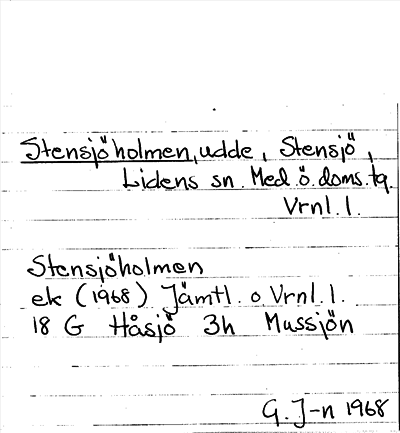 Stensjöholmen, udde, Stensjö,
Lidens sn. Med. ö. doms. tg.
Vrnl. l.
Stensjöholmen
ek (1968) Jämtl. o Vrnl. l.
18 G Håsjö 3h Mussjön
G. J-n 1968